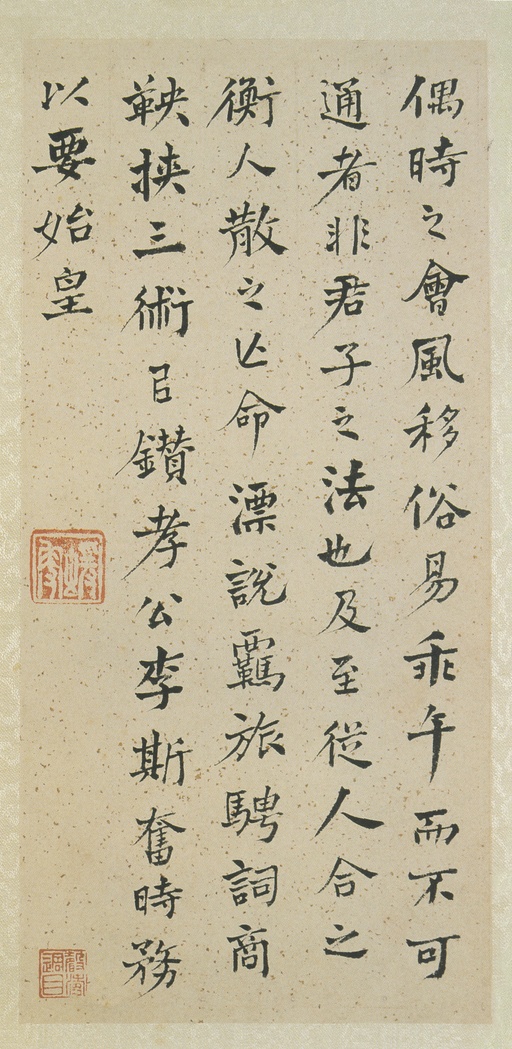 偶時之會風移俗易乖午而不可
通者非君子之法也及至從人合之
衡人散之亾命漂說羈旅騁詞商
鞅挾三術㠯鑚孝公李斯奮時務
以要始皇